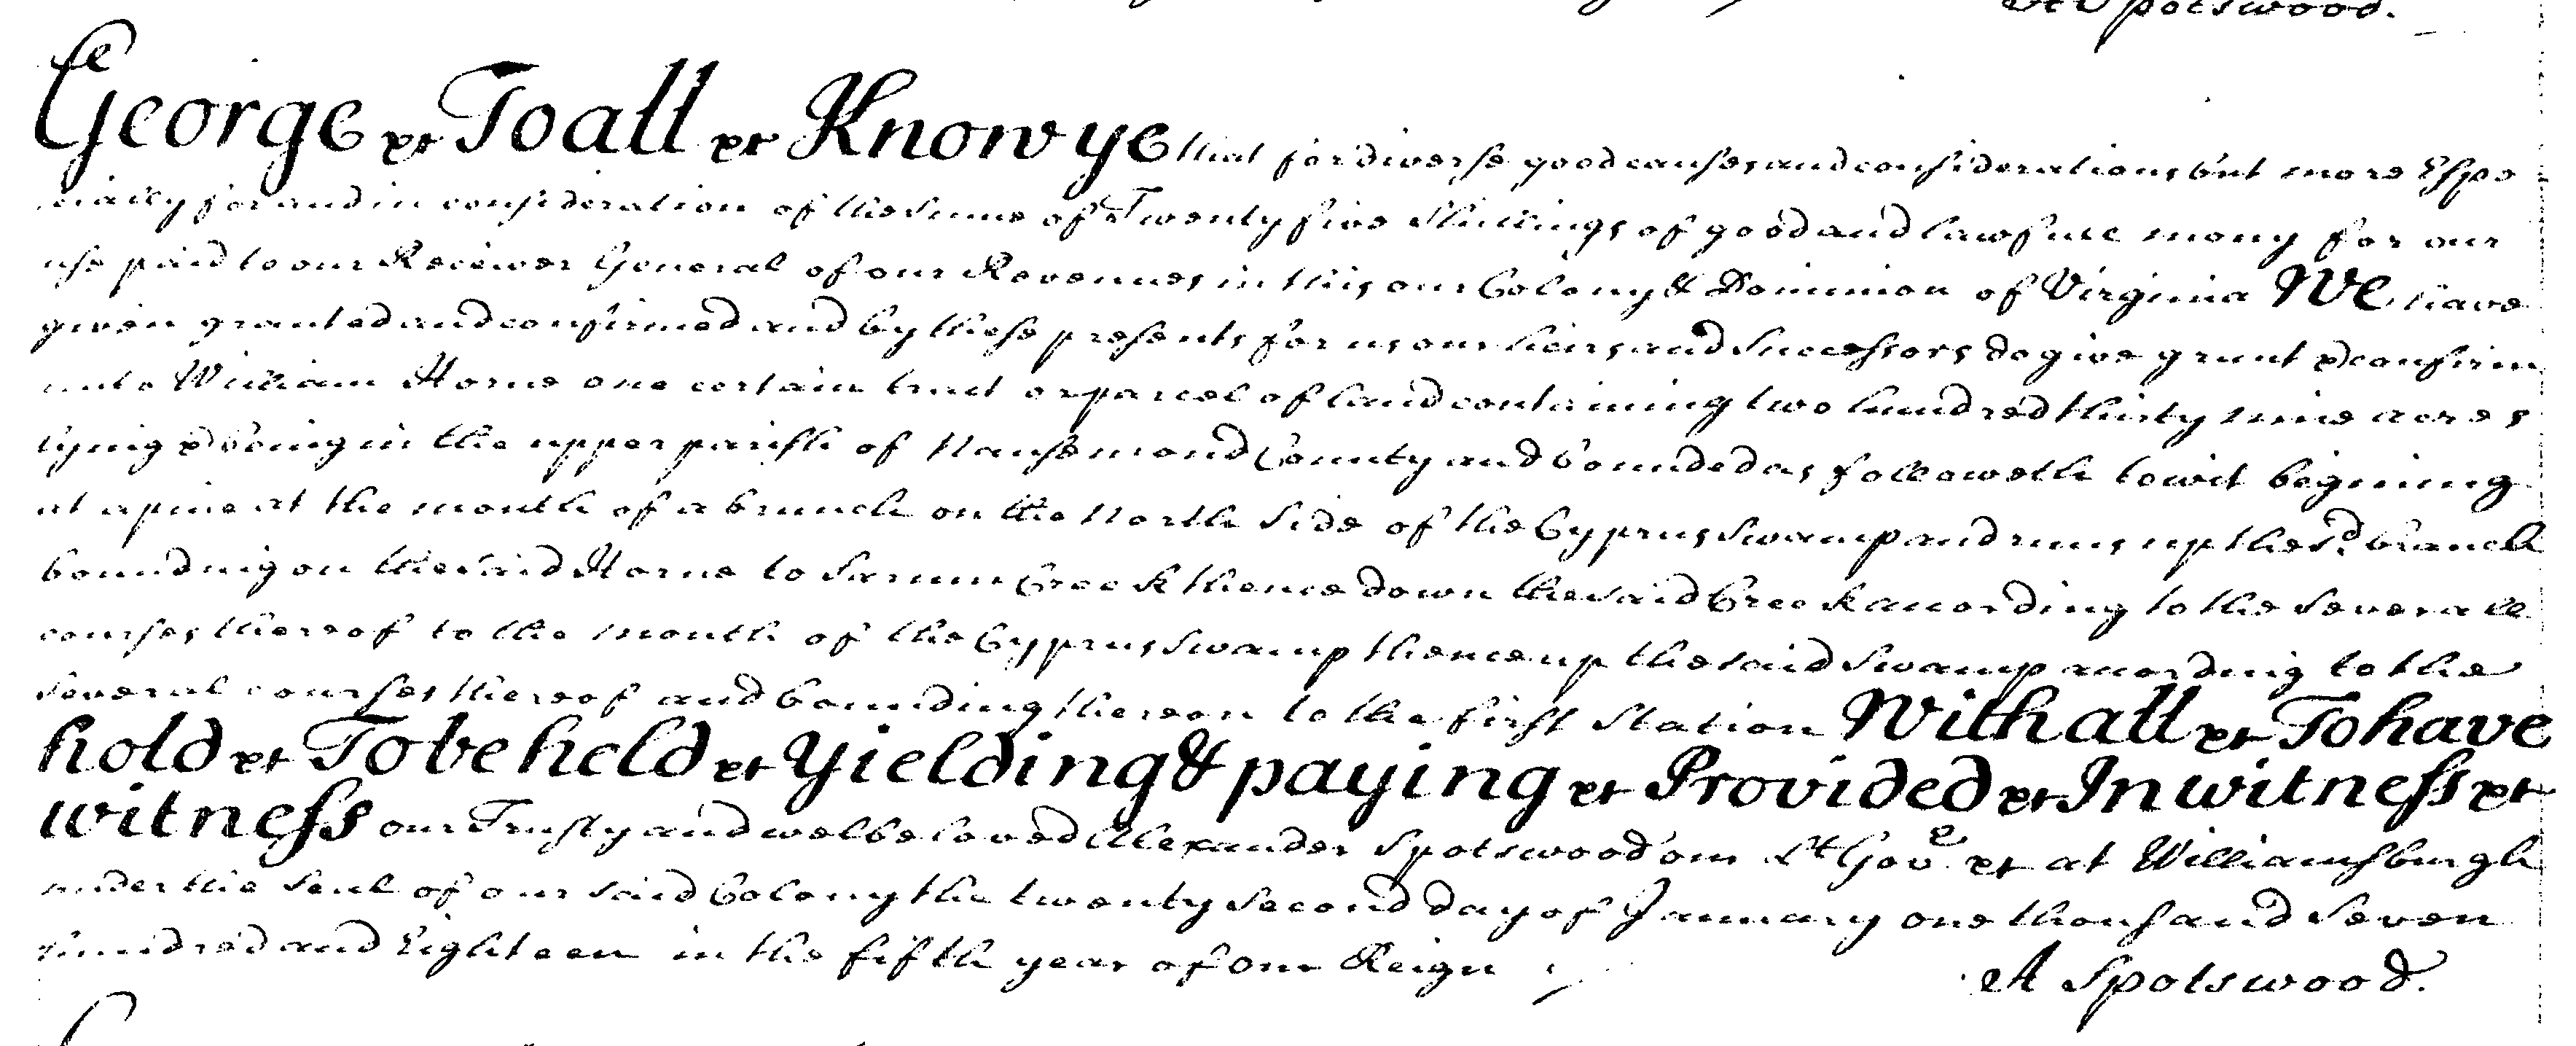 Spotswood.
George &c To all &c Know ye that for diverse good causes and considerations but more Espe
cially for and in consideration of the Sume of Twenty five Shillings of good and lawfull mony for our
use paid to our Receiver General of our Revenues in this our Colony & Dominion of Virginia We have
given granted and confirmed and by these presents for us our heirs and Successors do give grant & confirm
unto William Horne one certain tract or parcel of land containing two hundred thirty nine acres
lying & being in the upper parish of Nansemond County and bounded as followeth towit begining
at a pine at the mouth of a branch on the North Side of the Cyprus Swamp and runs up the sd. branch
bounding on the said Horne to Sarum Creek thence down the said Creek according to the Severall
courses thereof to the mouth of the Cyprus Swamp thence up the said Swamp acording to the
several courses thereof and bounding thereon to the first Station With all &c To have
hold &c To be held &c Yielding & paying &c Provided &c In witness &c
witness our Trusty and welbeloved Alexander Spotswood our Lt Govr &c at Williamsburgh
under the Seal of our said Colony the twenty Second day of January one thousand Seven
hundred and Eighteen in the fifth year of our Reign
A Spotswood.